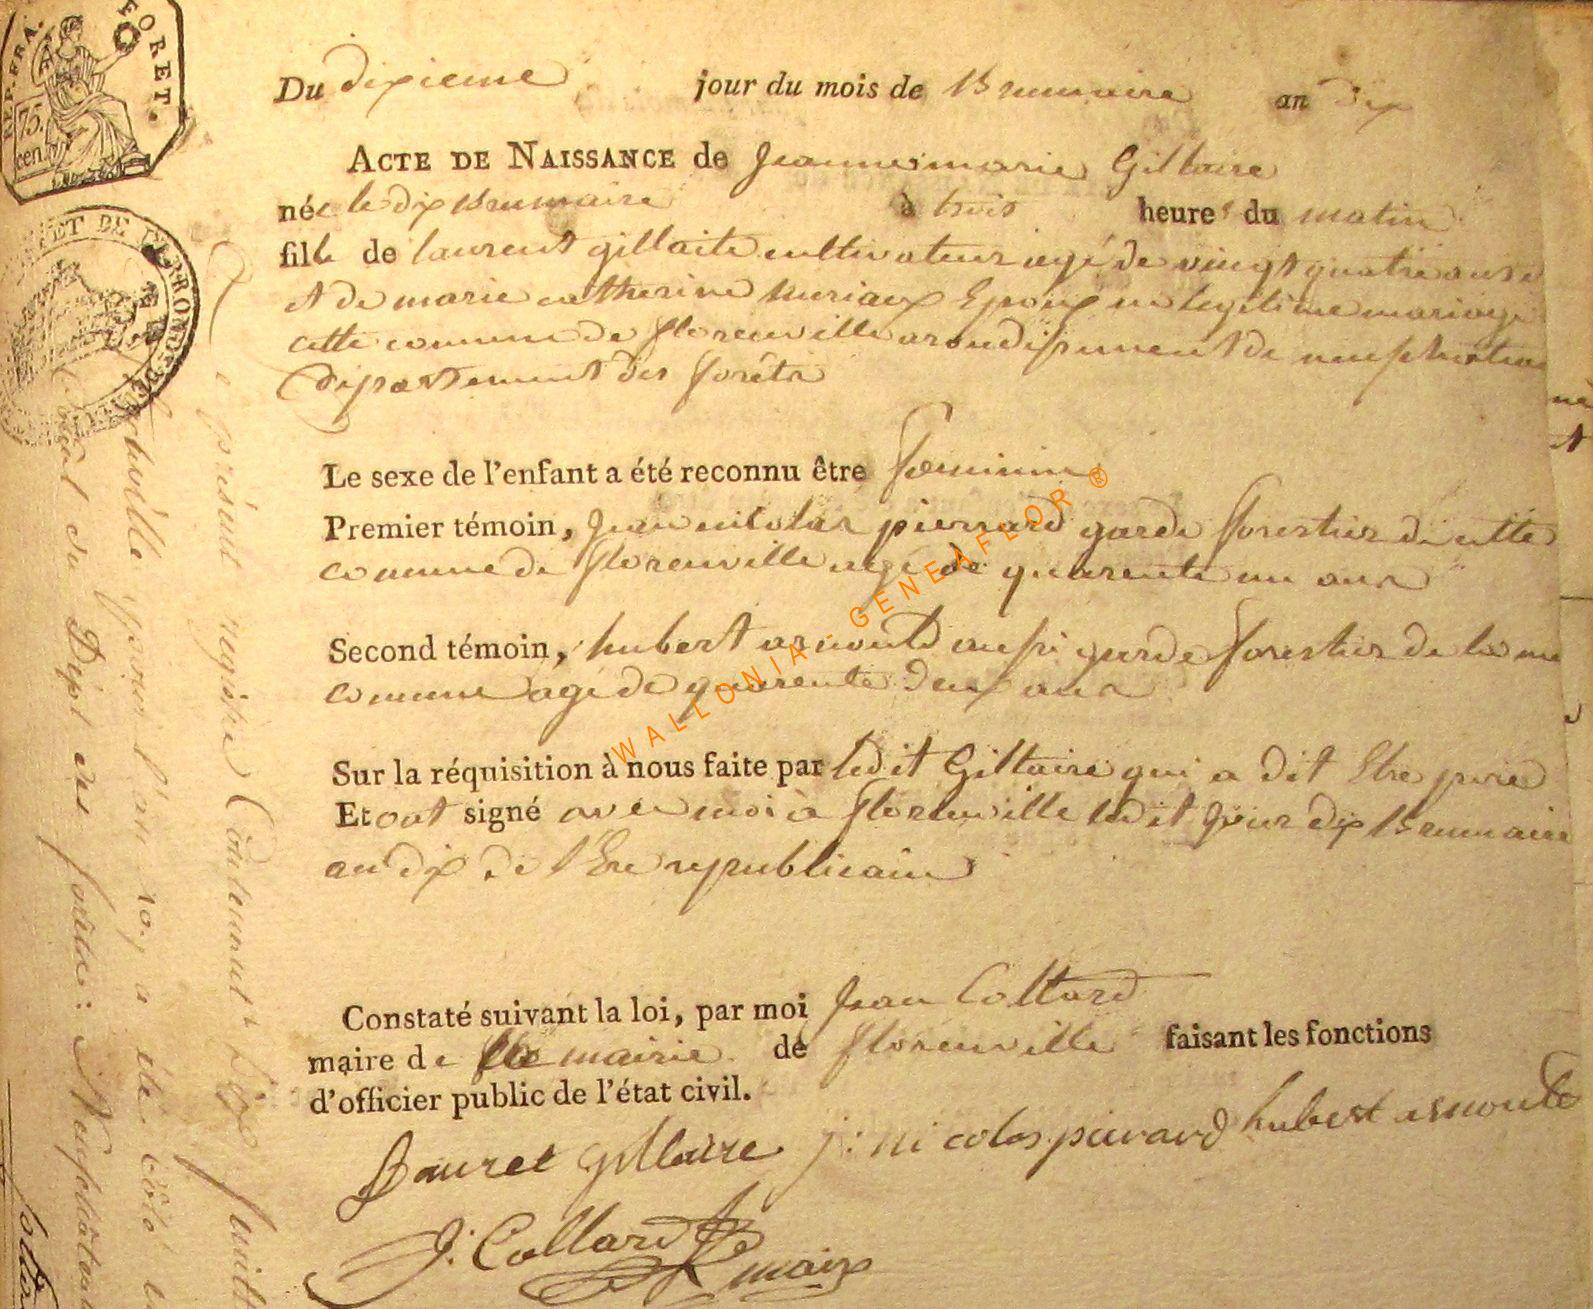 REP. FRA.
FORET.
75.
cen.
Du dixieme jour du mois de Brumaire an dix
ACTE DE NAISSANCE de Jeanne marie Giltaire
née le dix Brumaire à trois heures du matin
fille de laurent giltaire cultivateur agé de vingt quatre ans
et de marie catherine Epoux en legitime mariage
cette comune de florenville arondissement de neufchateau
departement des forêts
Le sexe de l'enfant a été reconnu être feminin
Premier témoin, Jean nicolas pierrard garde forestier de cette
comune de florenville agé de quarente un ans
Second témoin, hubert arnould aussi garde forestier de la me
comune agé de quarente deux ans
Sur la réquisition à nous faite par ledit Giltaire qui a dit Etre
Et ont signé avec moi à florenville ledit jour dix Brumaire
an dix de l'Ere republicain
Constaté suivant la loi, par moi Jean Collard
maire de mairie de florenville faisant les fonctions
d'officier public de l'état civil.
Lauret gillaire j: nicolas pierard hubert arnould
J: Collard maire
WALLONIA - GENEAFLOR ®
Le présent registre Contenant dix
pour l'an 10, a été côté
du Dépt des forêts: Neufchâteau